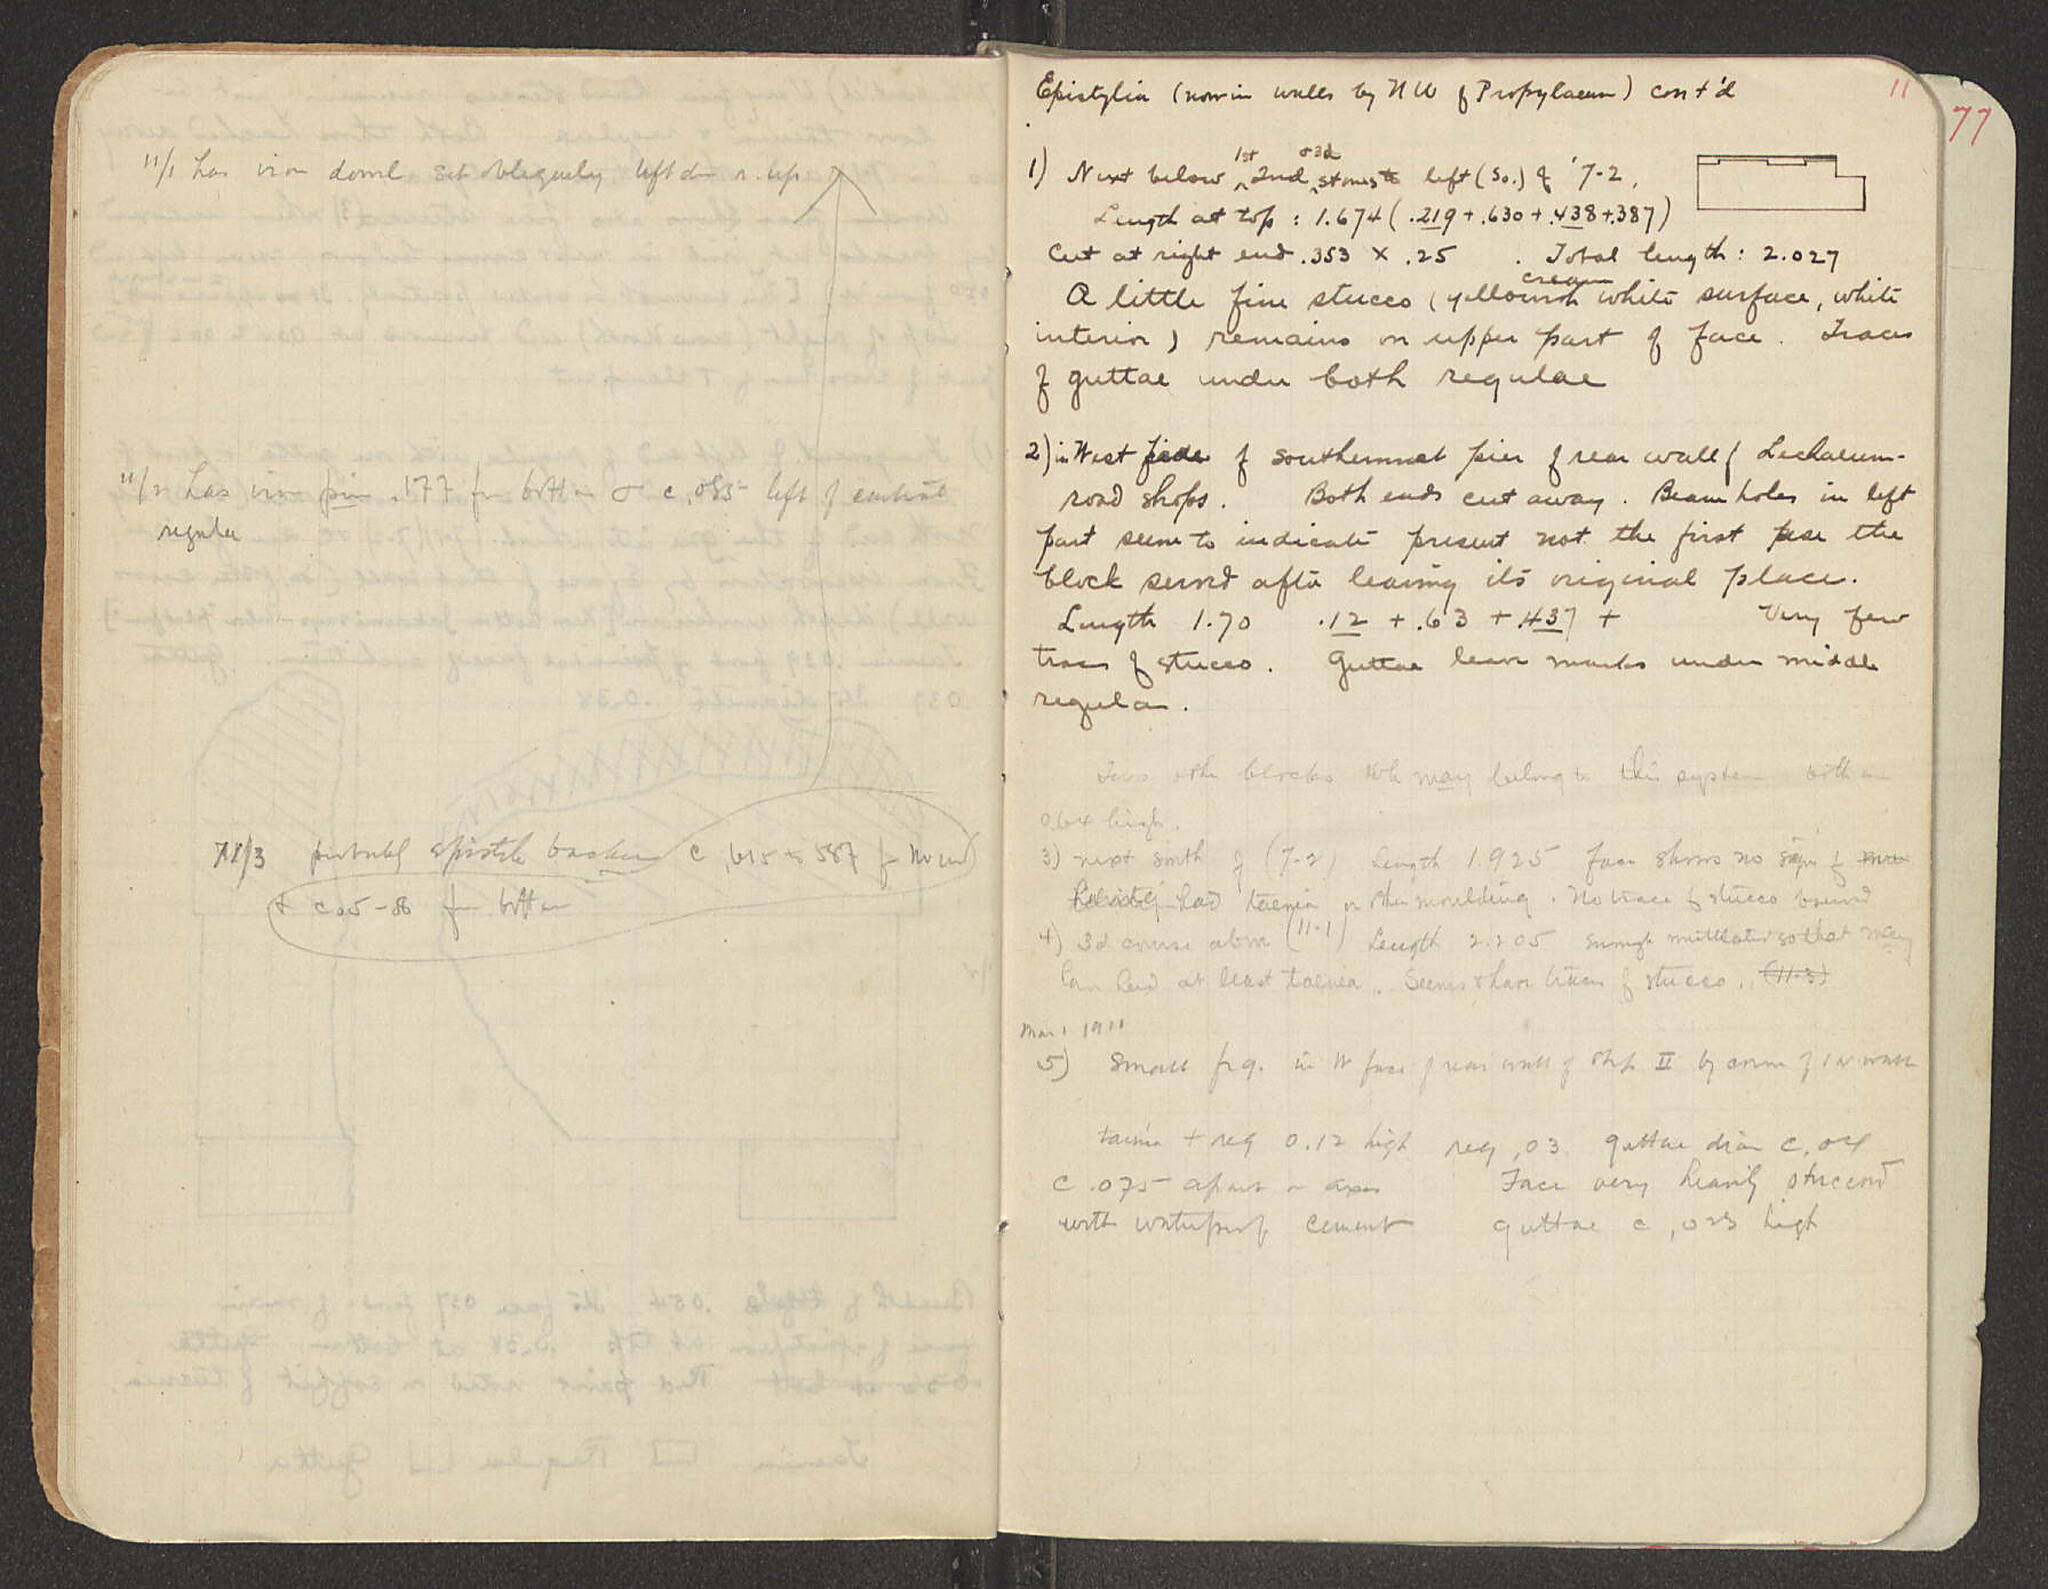 11/1 has iron dowel set obliquely left dn r. up
11/2 has iron pin .177 fr bottom & c .055 left of central
regula
11/3 probably epistyle backer c .615 to 587 fr No end
& c 05-86 fr bottom
11
77
Epistylia (now in walls by NW of Propylaeum) cont'd
1) Next below 1st 2nd & 3d stones to left (So.) of 7-2.
Length at top : 1.674 (.219 + .630 + .438 + .387)
Cut at right end .353 x .25 . Total length : 2.027
A little fine stucco (yellowish cream white surface, white
interior) remains on upper part of face. Traces
of guttae under both regulae
2) in West face of southernmost pier of rear wall of Lechaeum-
road shops. Both ends cut away. Beam holes in left
part seem to indicate present not the first use the
block served after leaving its original place.
Length 1.70 .12 + .63 + .437 + Very few
traces of stucco. Guttae leave marks under middle
regula.
Two other blocks wh may belong to this system both are
0.64 high.
3) next south of (7-2) Length 1.925 face shows no sign of
having had taenia or other moulding. No trace of stucco
4) 3d course above (11-1) Length 2.205 mutilated so that may
have had at least taenia. Seems to have traces of stucco. (11-3)
Mar 1 1911
5) Small frg. in W face of rear wall of shop II by
taenia + reg 0.12 high reg .03 guttae diam c .04
c .075 apart on axes Face very heavily stuccoed
with waterproof cement guttae c .023 high